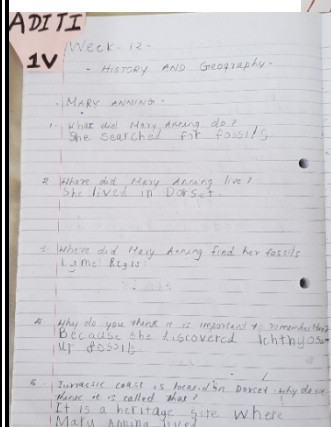 ADITI
1V
Week - 12 -
- HISTORY AND Geography -
- MARY ANNING -
1. What did Mary Anning do?
She searched for fossils
2. Where did Mary Anning live?
She lived in Dorset.
3. Where did Mary Anning find her fossils
Lyme Regis.
4. Why do you think it is important to remember
Because she discovered Ichthyosa
ur fossils.
5. Jurassic coast is located in Dorset. why do we
think it is called that?
It is a heritage site where
Mary Anning lived